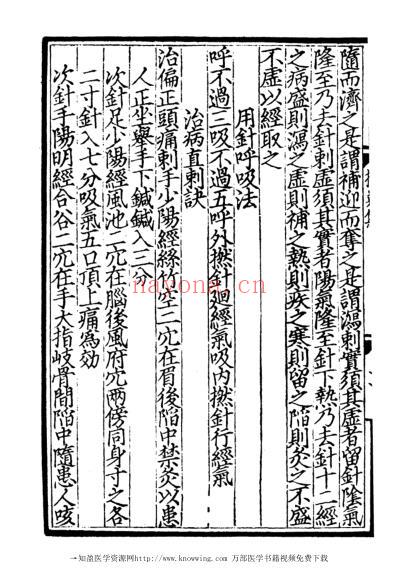 隨而濟之是謂補迎而奪之是謂瀉刺實須其虛者留針陰氣
隆至乃去針刺虛須其實者陽氣隆至針下熱乃去針十二經
之病盛則瀉之虛則補之熱則疾之寒則留之陷則灸之不盛
不虛以經取之
用針呼吸法
呼不過三吸不過五呼外撚針迴經氣吸內撚針行經氣
治病直刺訣
治偏正頭痛刺手少陽經絲竹空二穴在眉後陷中禁灸以患
人正坐舉手下鍼鍼入三分
次針足少陽經風池二穴在腦後風府穴兩傍同身寸之各
二寸針入七分吸氣五口頂上痛為効
次針手陽明經合谷二穴在手大指岐骨間陷中隨患人咳
nayona.cn
一知盈医学资源网http://www.knowwing.com 万部医学书籍视频免费下载